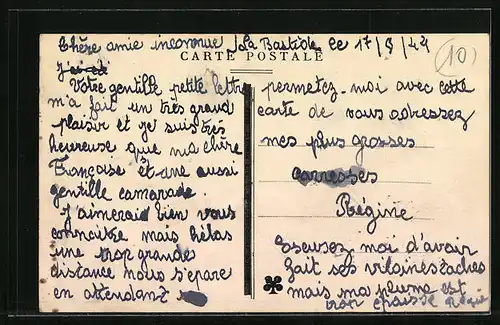 Chère amie inconnue / La Bastide ce 17/8/44
CARTE POSTALE
10
Votre gentille petite lettre
m'a fait un très grand
plaisir et je suis très
heureuse que ma chère
Françoise et une aussi
gentille camarade.
J'aimerai bien vous
connaitre mais hélas
une trop grandes
distance nous s'epare
en attendant
permetez-moi avec cette
carte de vous adressez
mes plus grosses
carresses
Régine
Escusez moi d'avoir
fait ses vilaines taches
mais ma plume est
tron epaisse